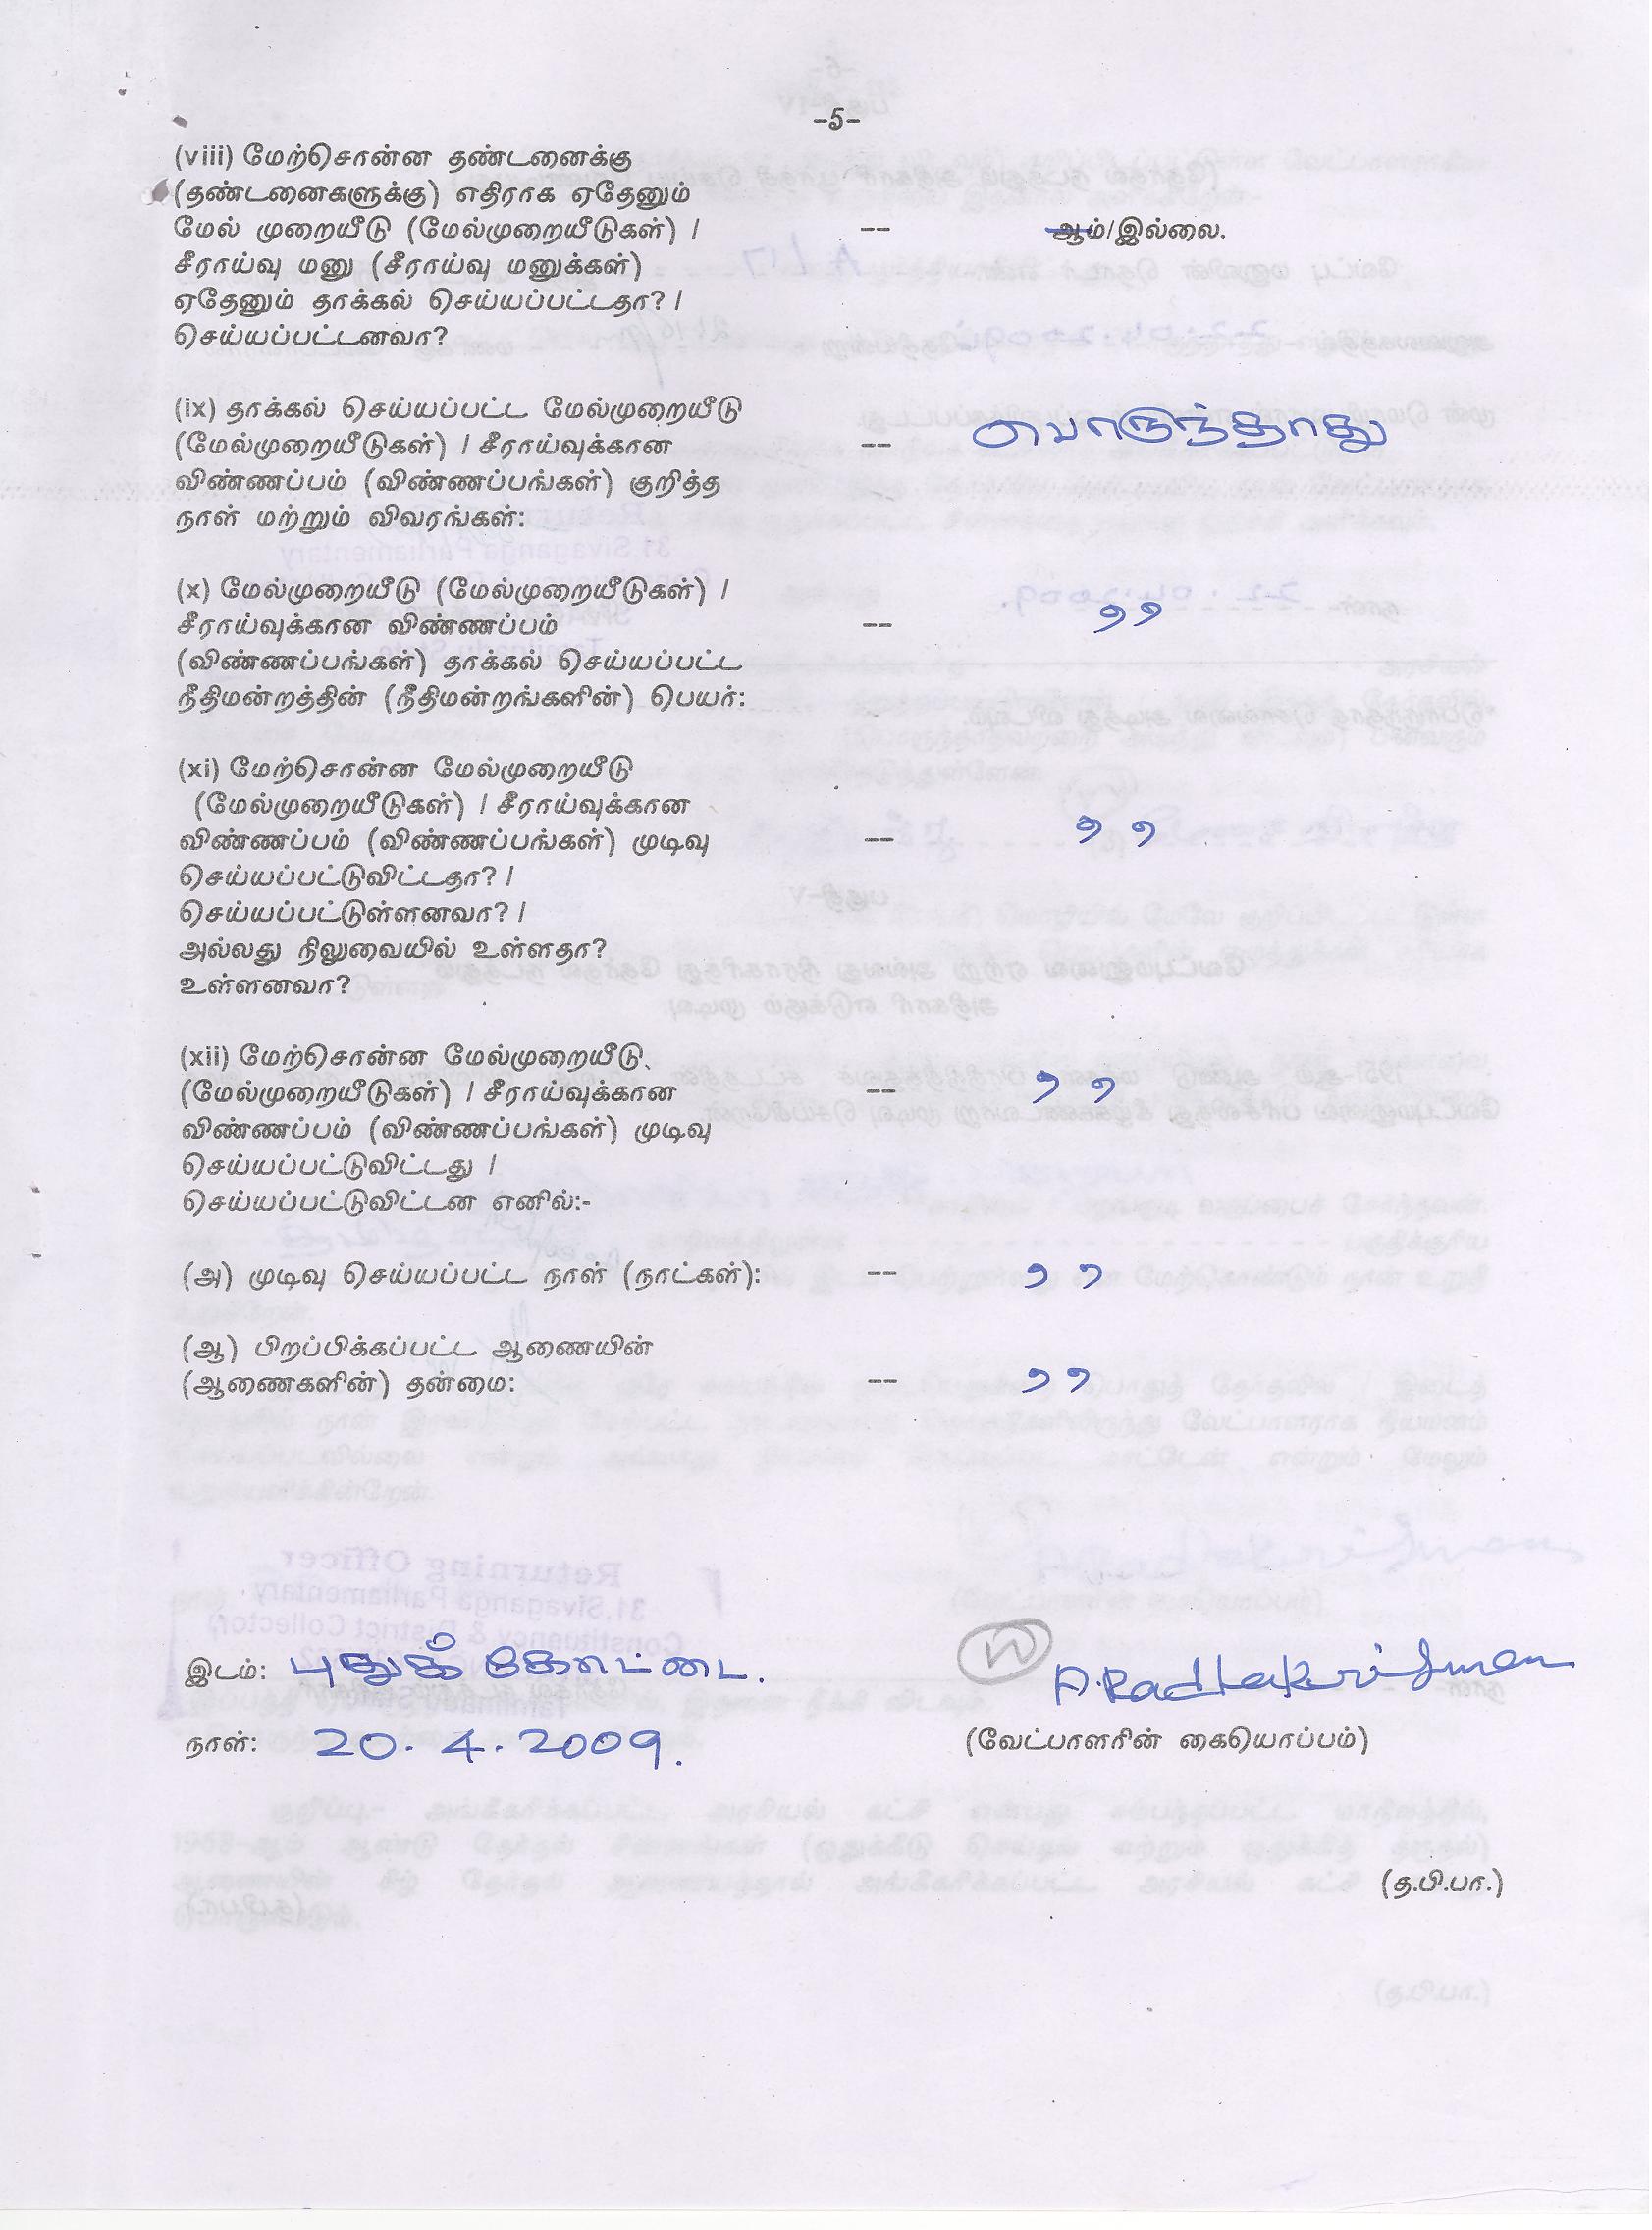 -5-
(viii) மேற்சொன்ன தண்டனைக்கு
(தண்டனைகளுக்கு) எதிராக ஏதேனும்
மேல் முறையீடு (மேல்முறையீடுகள்) / -- ஆம்/இல்லை.
சீராய்வு மனு (சீராய்வு மனுக்கள்)
ஏதேனும் தாக்கல் செய்யப்பட்டதா? /
செய்யப்பட்டனவா?
(ix) தாக்கல் செய்யப்பட்ட மேல்முறையீடு
(மேல்முறையீடுகள்) / சீராய்வுக்கான -- பொருந்தாது
விண்ணப்பம் (விண்ணப்பங்கள்) குறித்த
நாள் மற்றும் விவரங்கள்:
(x) மேல்முறையீடு (மேல்முறையீடுகள்) /
சீராய்வுக்கான விண்ணப்பம் -- ,,
(விண்ணப்பங்கள்) தாக்கல் செய்யப்பட்ட
நீதிமன்றத்தின் (நீதிமன்றங்களின்) பெயர்:
(xi) மேற்சொன்ன மேல்முறையீடு
(மேல்முறையீடுகள்) / சீராய்வுக்கான
விண்ணப்பம் (விண்ணப்பங்கள்) முடிவு -- ,,
செய்யப்பட்டுவிட்டதா? /
செய்யப்பட்டுள்ளனவா? /
அல்லது நிலுவையில் உள்ளதா?
உள்ளனவா?
(xii) மேற்சொன்ன மேல்முறையீடு
(மேல்முறையீடுகள்) / சீராய்வுக்கான -- ,,
விண்ணப்பம் (விண்ணப்பங்கள்) முடிவு
செய்யப்பட்டுவிட்டது /
செய்யப்பட்டுவிட்டன எனில்:-
(அ) முடிவு செய்யப்பட்ட நாள் (நாட்கள்): -- ,,
(ஆ) பிறப்பிக்கப்பட்ட ஆணையின்
(ஆணைகளின்) தன்மை: -- ,,
இடம்: புதுக் கோட்டை. A.Radhakrishnan
நாள்: 20.4.2009. (வேட்பாளரின் கையொப்பம்)
(த.பி.பா.)